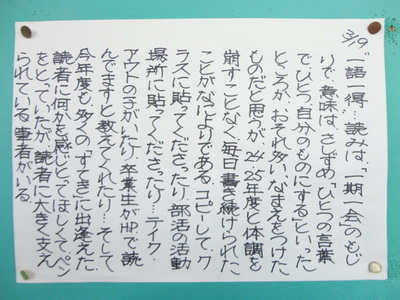 3/19
"一語一得"…読みは、「一期一会」のもじ
りで、意味は、さしずめ「ひとつの言葉
でひとつ、自分のものにする」といった
ところか、おそれ多いなまえをつけた
ものだと思うが、24・25年度と体調を
崩すことなく、毎日書き続けられた
ことがなによりである。コピーして、ク
ラスに貼ってくださったり、部活の活動
場所に貼ってくださったり…テイク・
アウトの子がいたり、卒業生がHPで読
んでますと教えてくれたり…そして
今年度も、多くの「すてき」に出逢えた。
読者に何かを感じとってほしくて、ペン
をとっていたが、読者に大きく支え
られている、筆者がいる。